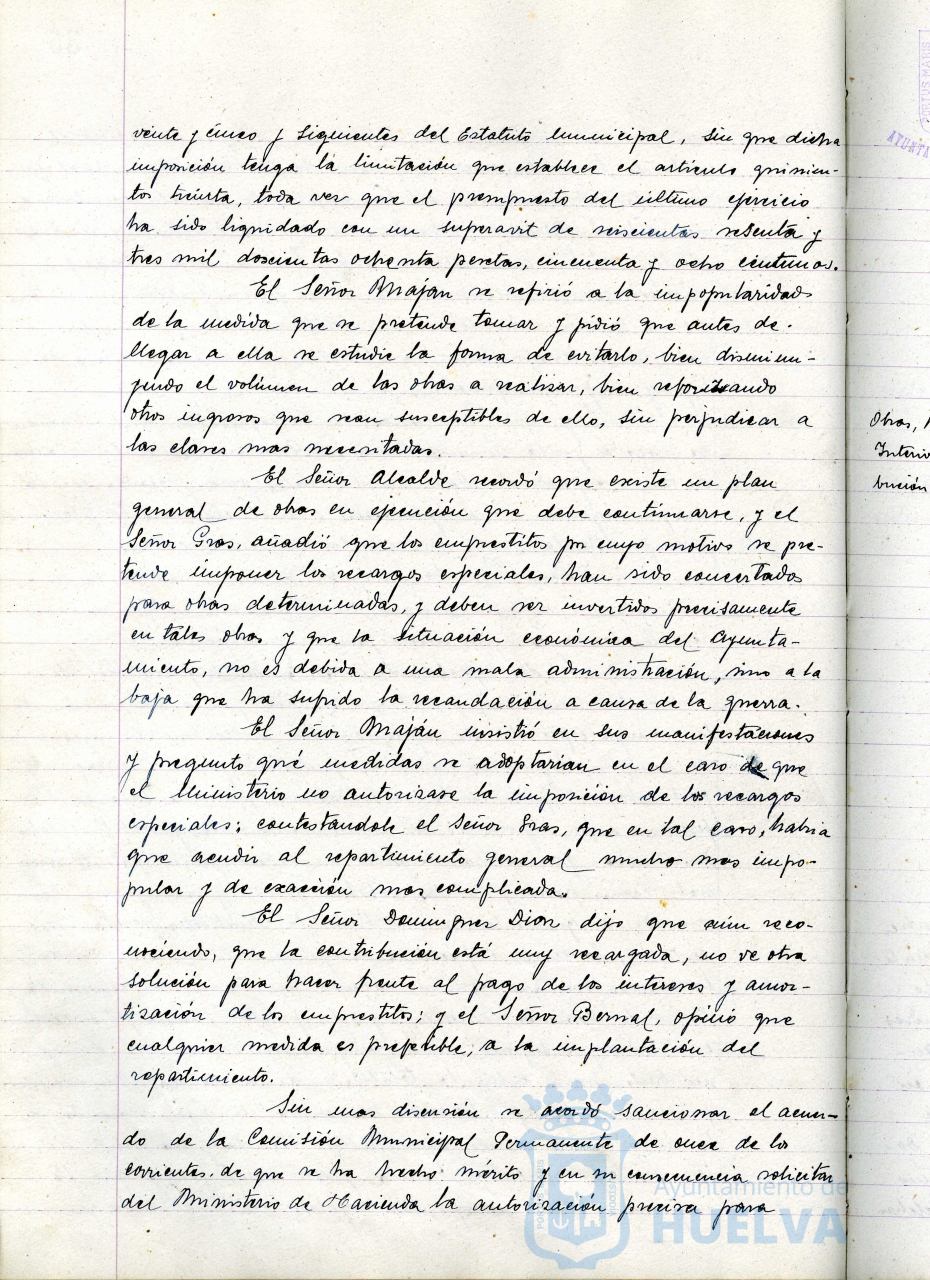 veinte y cinco y siguientes del Estatuto Municipal, sin que dicha
imposición tenga la limitación que establece el artículo quinien-
tos treinta, toda vez que el presupuesto del último ejercicio
ha sido liquidado con un superavit de seiscientas sesenta y
tres mil doscientas ochenta pesetas, cincuenta y ocho céntimos.
El Señor Maján se refirió a la impopularidad
de la medida que se pretende tomar y pidió que antes de
llegar a ella se estudie la forma de evitarlo, bien disminu-
yendo el volúmen de las obras a realizar, bien reforzando
otros ingresos que sean susceptibles de ello, sin perjudicar a
las clases mas necesitadas.
El Señor Alcalde recordó que existe un plan
general de obras en ejecución que debe continuarse, y el
Señor Gras, añadió que los emprestitos por cuyo motivo se pre-
tende imponer los recargos especiales, han sido concertados
para obras determinadas, y deben ser invertidos precisamente
en tales obras y que la situación económica del Ayunta-
miento, no es debida a una mala administración, sino a la
baja que ha sufrido la recaudación a causa de la guerra.
El Señor Maján insistió en sus manifestaciones
y pregunto qué medidas se adoptarian en el caso de que
el Ministerio no autorizase la imposición de los recargos
especiales; contestándole el Señor Gras, que en tal caso, habria
que acudir al repartimiento general mucho mas impo-
pular y de exacción mas complicada.
El Señor Dominguez Diaz dijo que aún reco-
nociendo, que la contribución está muy recargada, no ve otra
solución para hacer frente al pago de los intereses y amor-
tización de los emprestitos; y el Señor Bernal, opinó que
cualquier medida es preferible, a la implantación del
repartimiento.
Sin mas discusión se acordó sancionar el acuer-
do de la Comisión Municipal Permanente de once de los
corrientes, de que se ha hecho mérito y en su consecuencia solicitar
del Ministerio de Hacienda la autorización precisa para
Obras,
Interio
bución
Ayuntamiento de
HUELVA